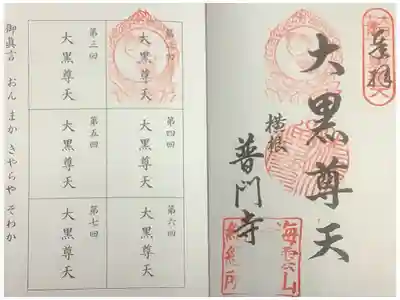 奉拝
大黒尊天
横根
普門寺
海雲山
納経所
第二回
大黒尊天
第三回
大黒尊天
第四回
大黒尊天
第五回
大黒尊天
第六回
大黒尊天
第七回
大黒尊天
御眞言 おん まか きゃらや そわか